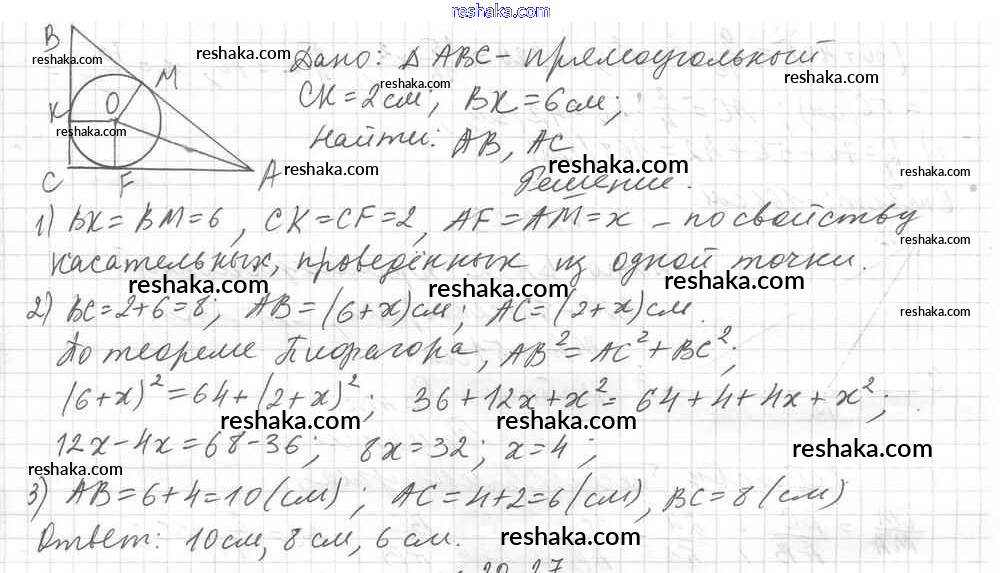 reshaka.com
B
reshaka.com
M
O
K
reshaka.com
C
F
A
reshaka.com
reshaka.com
Дано: Δ ABC - прямоугольный
reshaka.com
CK = 2 см; BK = 6 см;
reshaka.com
Найти: AB, AC
reshaka.com
reshaka.com
Решение.
1) BK = BM = 6, CK = CF = 2, AF = AM = x - по свойству
reshaka.com
касательных, проведённых из одной точки.
reshaka.com reshaka.com reshaka.com
2) BC = 2+6 = 8; AB = (6+x) см; AC = (2+x) см.
reshaka.com
По теореме Пифагора, AB² = AC² + BC²;
(6+x)² = 64 + (2+x)²; 36 + 12x + x² = 64 + 4 + 4x + x²;
reshaka.com reshaka.com
12x - 4x = 68 - 36; 8x = 32; x = 4;
reshaka.com
reshaka.com
3) AB = 6+4 = 10 (см); AC = 4+2 = 6 (см), BC = 8 (см)
reshaka.com
Ответ: 10 см, 8 см, 6 см.
reshaka.com